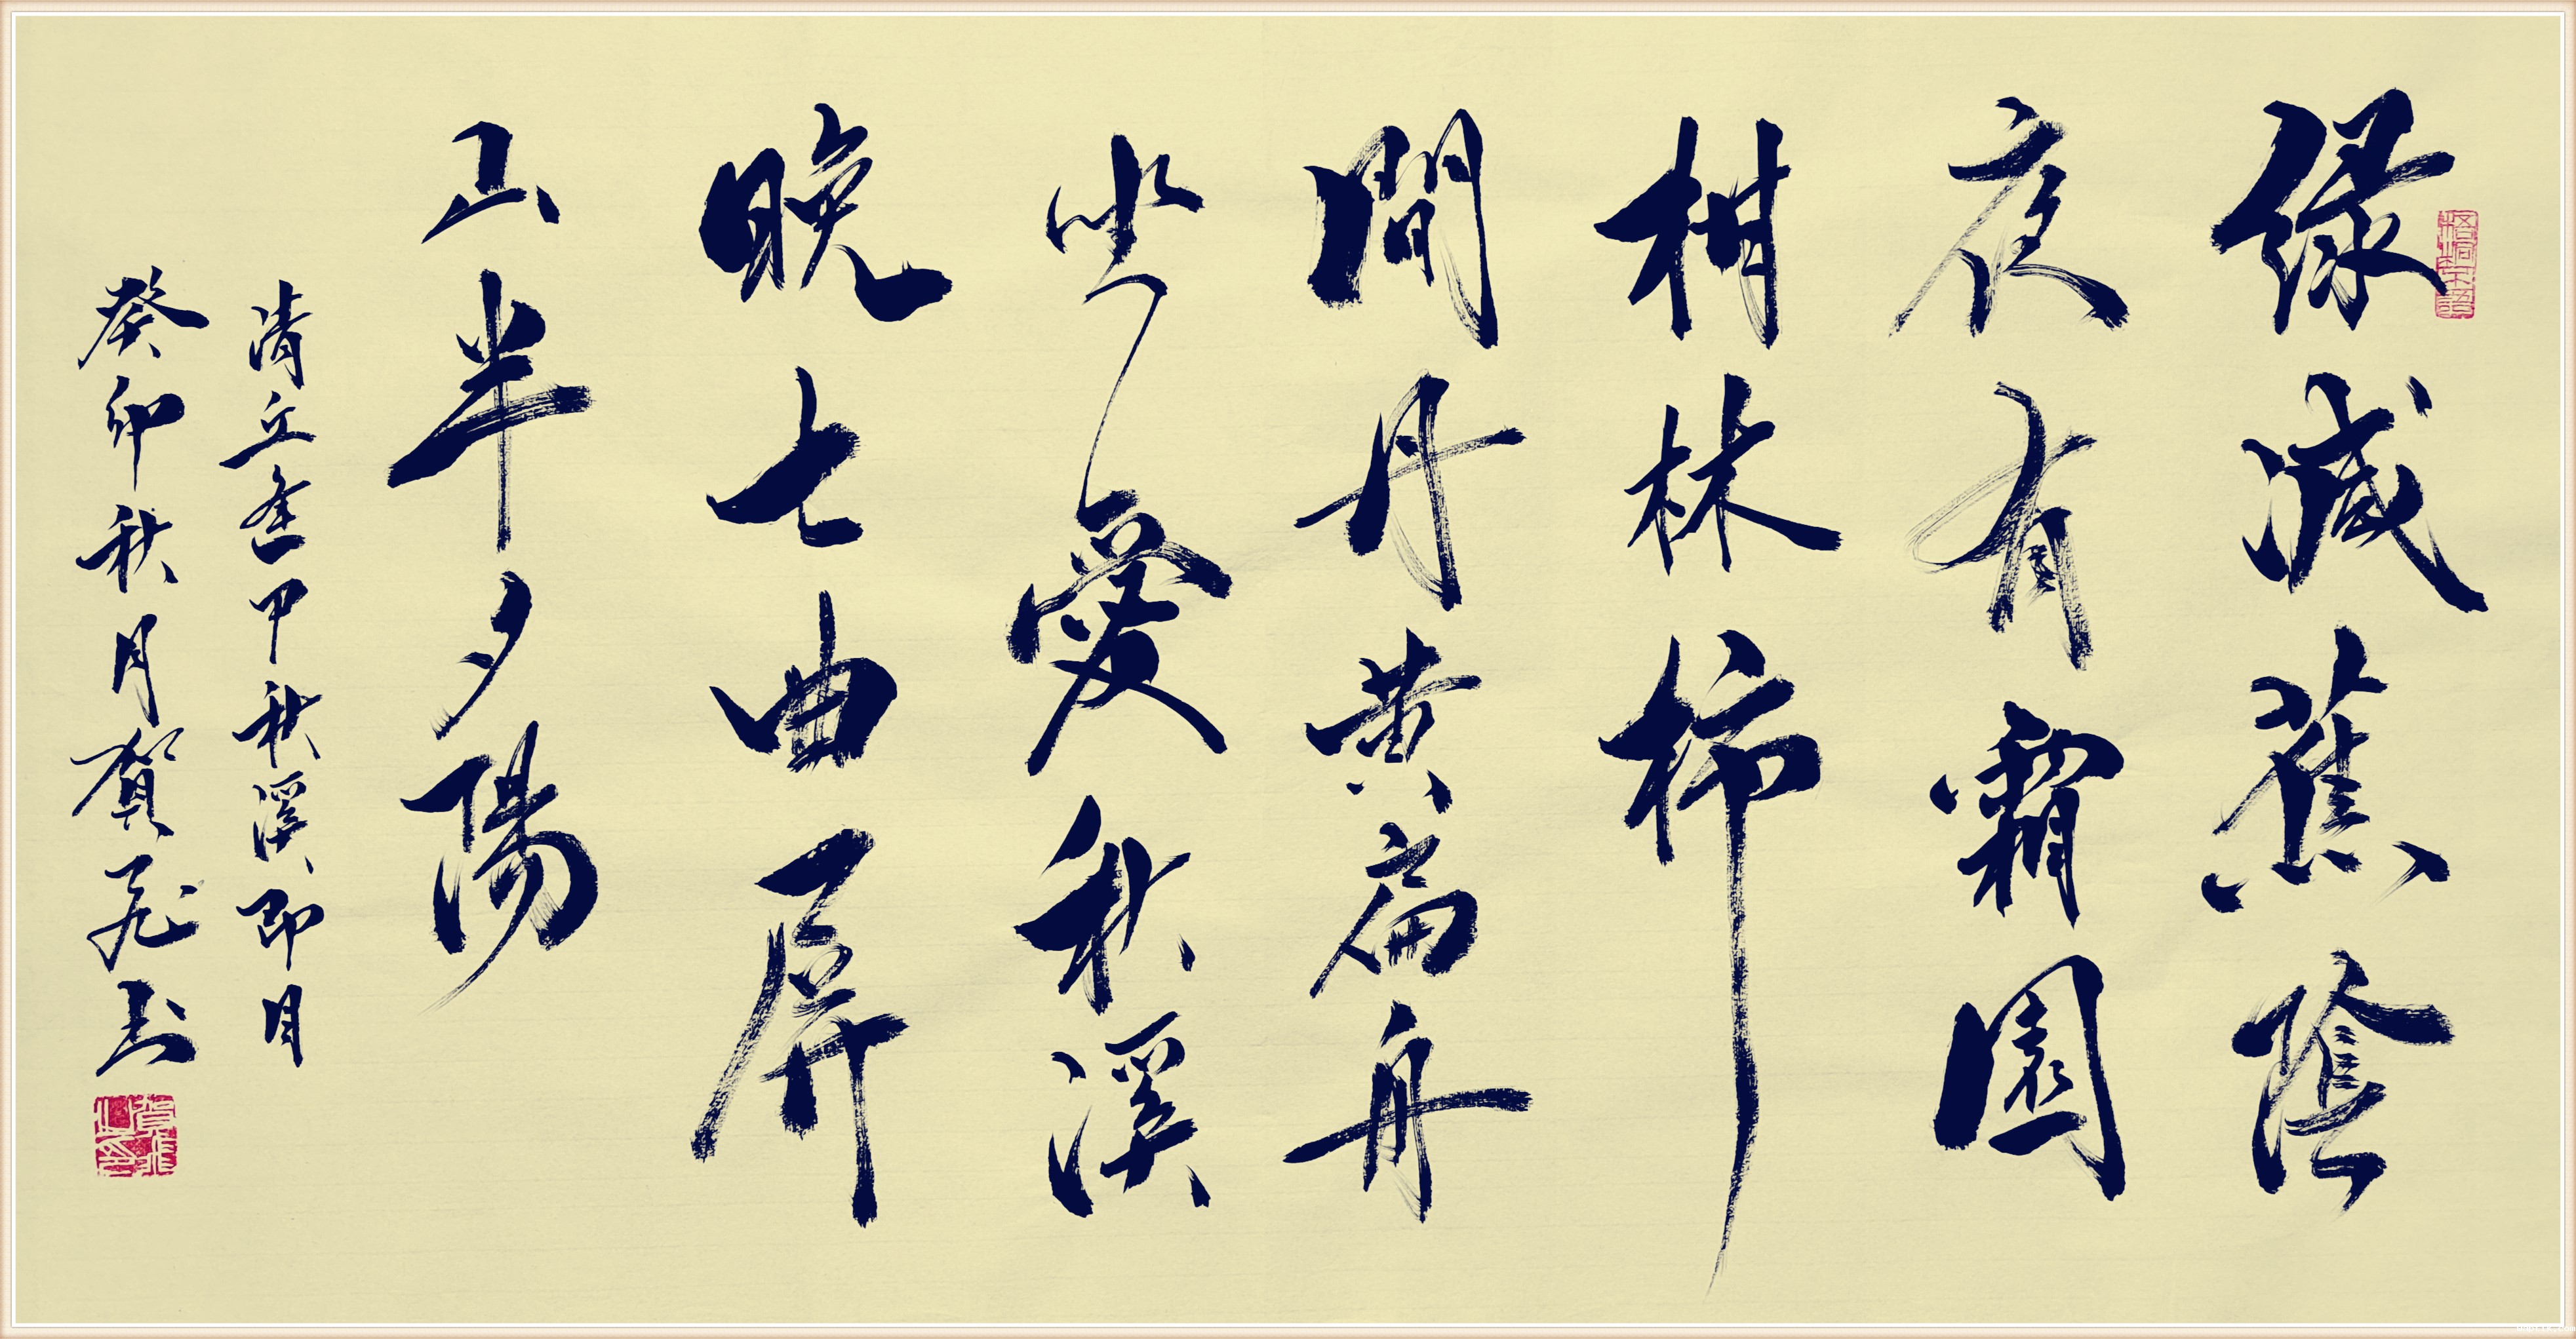 绿减蕉陰
夜有霜園
柑林柿
間丹黄扁舟
坐愛秋溪
晚七曲屏
山半夕陽
清丘逢甲秋溪即目
癸卯秋月賀飛书